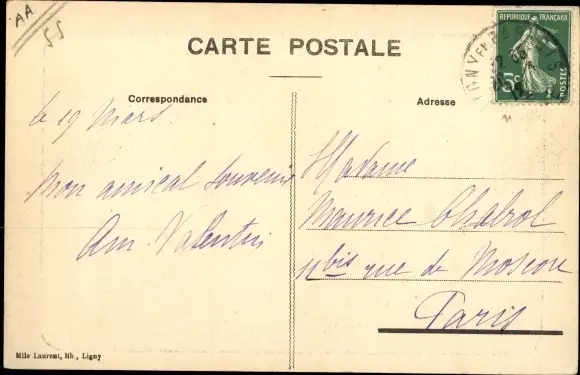 AA
55
CARTE POSTALE
RÉPUBLIQUE FRANÇAISE
5c
POSTES
Correspondance
Adresse
le 19 Mars
Mon amical souvenir
Am. Valentin
Madame
Maurice Chabrol
11 bis rue de Moscou
Paris
Mlle Laurent, lib., Ligny